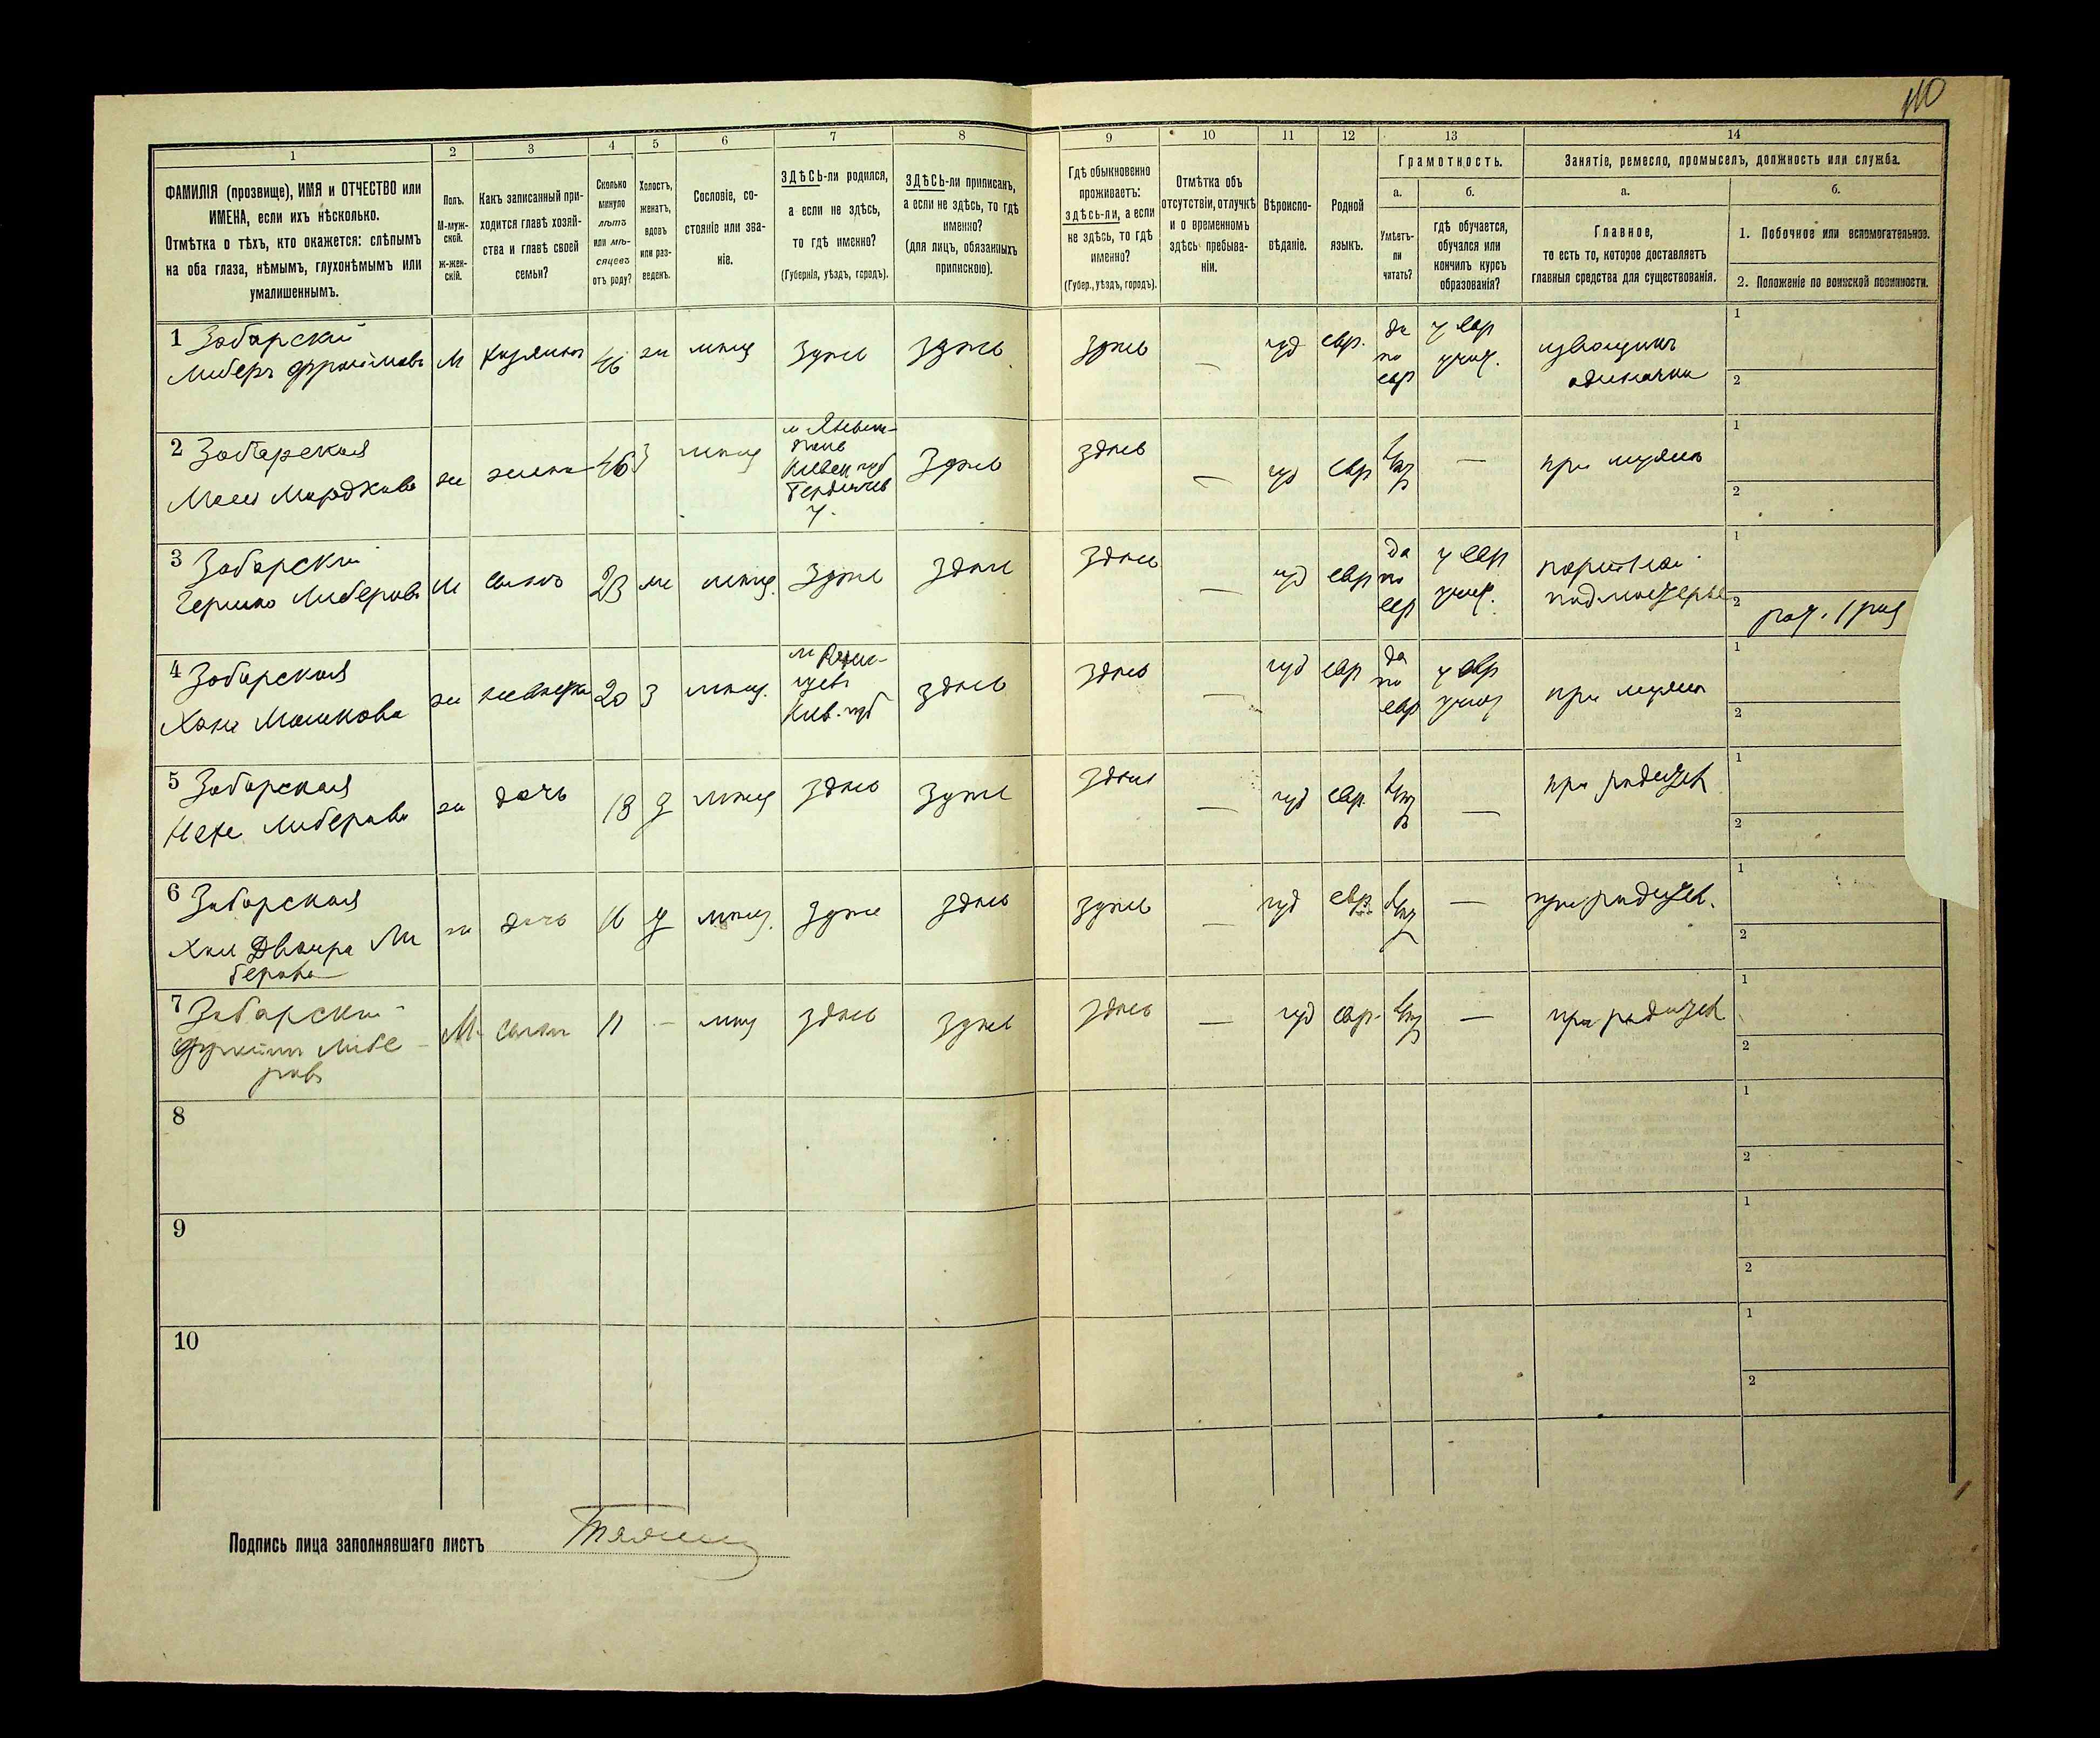 110
1 2 3 4 5 6 7 8 9 10 11 12 13 14
ФАМИЛІЯ (прозвище), ИМЯ и ОТЧЕСТВО или
ИМЕНА, если ихъ нѣсколько.
Отмѣтка о тѣхъ, кто окажется: слѣпымъ
на оба глаза, нѣмымъ, глухонѣмымъ или
умалишеннымъ.
Полъ.
М-муж-
ской.
Ж-жен-
скій.
Какъ записанный при-
ходится главѣ хозяй-
ства и главѣ своей
семьи?
Сколько
минуло
лѣтъ
или мѣ-
сяцевъ
отъ роду?
Холостъ,
женатъ,
вдовъ
или раз-
веденъ.
Сословіе, со-
стояніе или зва-
ніе.
ЗДѢСЬ-ли родился,
а если не здѣсь,
то гдѣ именно?
(Губернія, уѣздъ, городъ).
ЗДѢСЬ-ли приписанъ,
а если не здѣсь, то гдѣ
именно?
(для лицъ, обязанныхъ
припискою).
Гдѣ обыкновенно
проживаетъ:
здѣсь-ли, а если
не здѣсь, то гдѣ
именно?
(Губер., уѣздъ, городъ).
Отмѣтка объ
отсутствіи, отлучкѣ
и о временномъ
здѣсь пребыва-
ніи.
Вѣроиспо-
вѣданіе.
Родной
языкъ.
Грамотность.
а.
Умѣетъ-
ли
читать?
б.
гдѣ обучается,
обучался или
кончилъ курсъ
образованія?
Занятіе, ремесло, промыселъ, должность или служба.
а.
Главное,
то есть то, которое доставляетъ
главныя средства для существованія.
б.
1. Побочное или вспомогательное.
2. Положеніе по воинской повинности.
1 Забарскій
Либеръ Фроимовъ
М
хозяинъ
46
ж
мѣщ
здѣсь
здѣсь
здѣсь
—
іуд
евр.
да
по
евр
у евр
учит.
извощикъ
одиночка
1
2
2 Забарская
Мордкова
ж
жена
46
з
мѣщ
Киевск губ
Бердичев
у.
здѣсь
здѣсь
—
іуд
евр
—
при мужѣ
1
2
3 Забарскій
Гершко Либеровъ
М
сынъ
23
ж
мѣщ.
здѣсь
здѣсь
здѣсь
—
іуд
евр
да
по
евр
у евр
учит.
портной
подмастерье
1
2
4 Забарская
Хана Мошкова
ж
невѣстка
20
з
мѣщ.
Киев. губ
здѣсь
здѣсь
—
іуд
евр
да
по
евр
у евр
учит
при мужѣ
1
2
5 Забарская
Либерова
ж
дочь
18
д
мѣщ
здѣсь
здѣсь
здѣсь
—
іуд
евр.
—
при родител
1
2
6 Забарская
Двойра Ли
берова
ж
дочь
16
д
мѣщ.
здѣсь
здѣсь
здѣсь
—
іуд
евр.
—
при родител.
1
2
7 Забарскій
Либе
ровъ
М
сынъ
11
—
мѣщ
здѣсь
здѣсь
здѣсь
—
іуд
евр.
—
при родител
1
2
8
1
2
9
1
2
10
1
2
Подпись лица заполнявшаго листъ